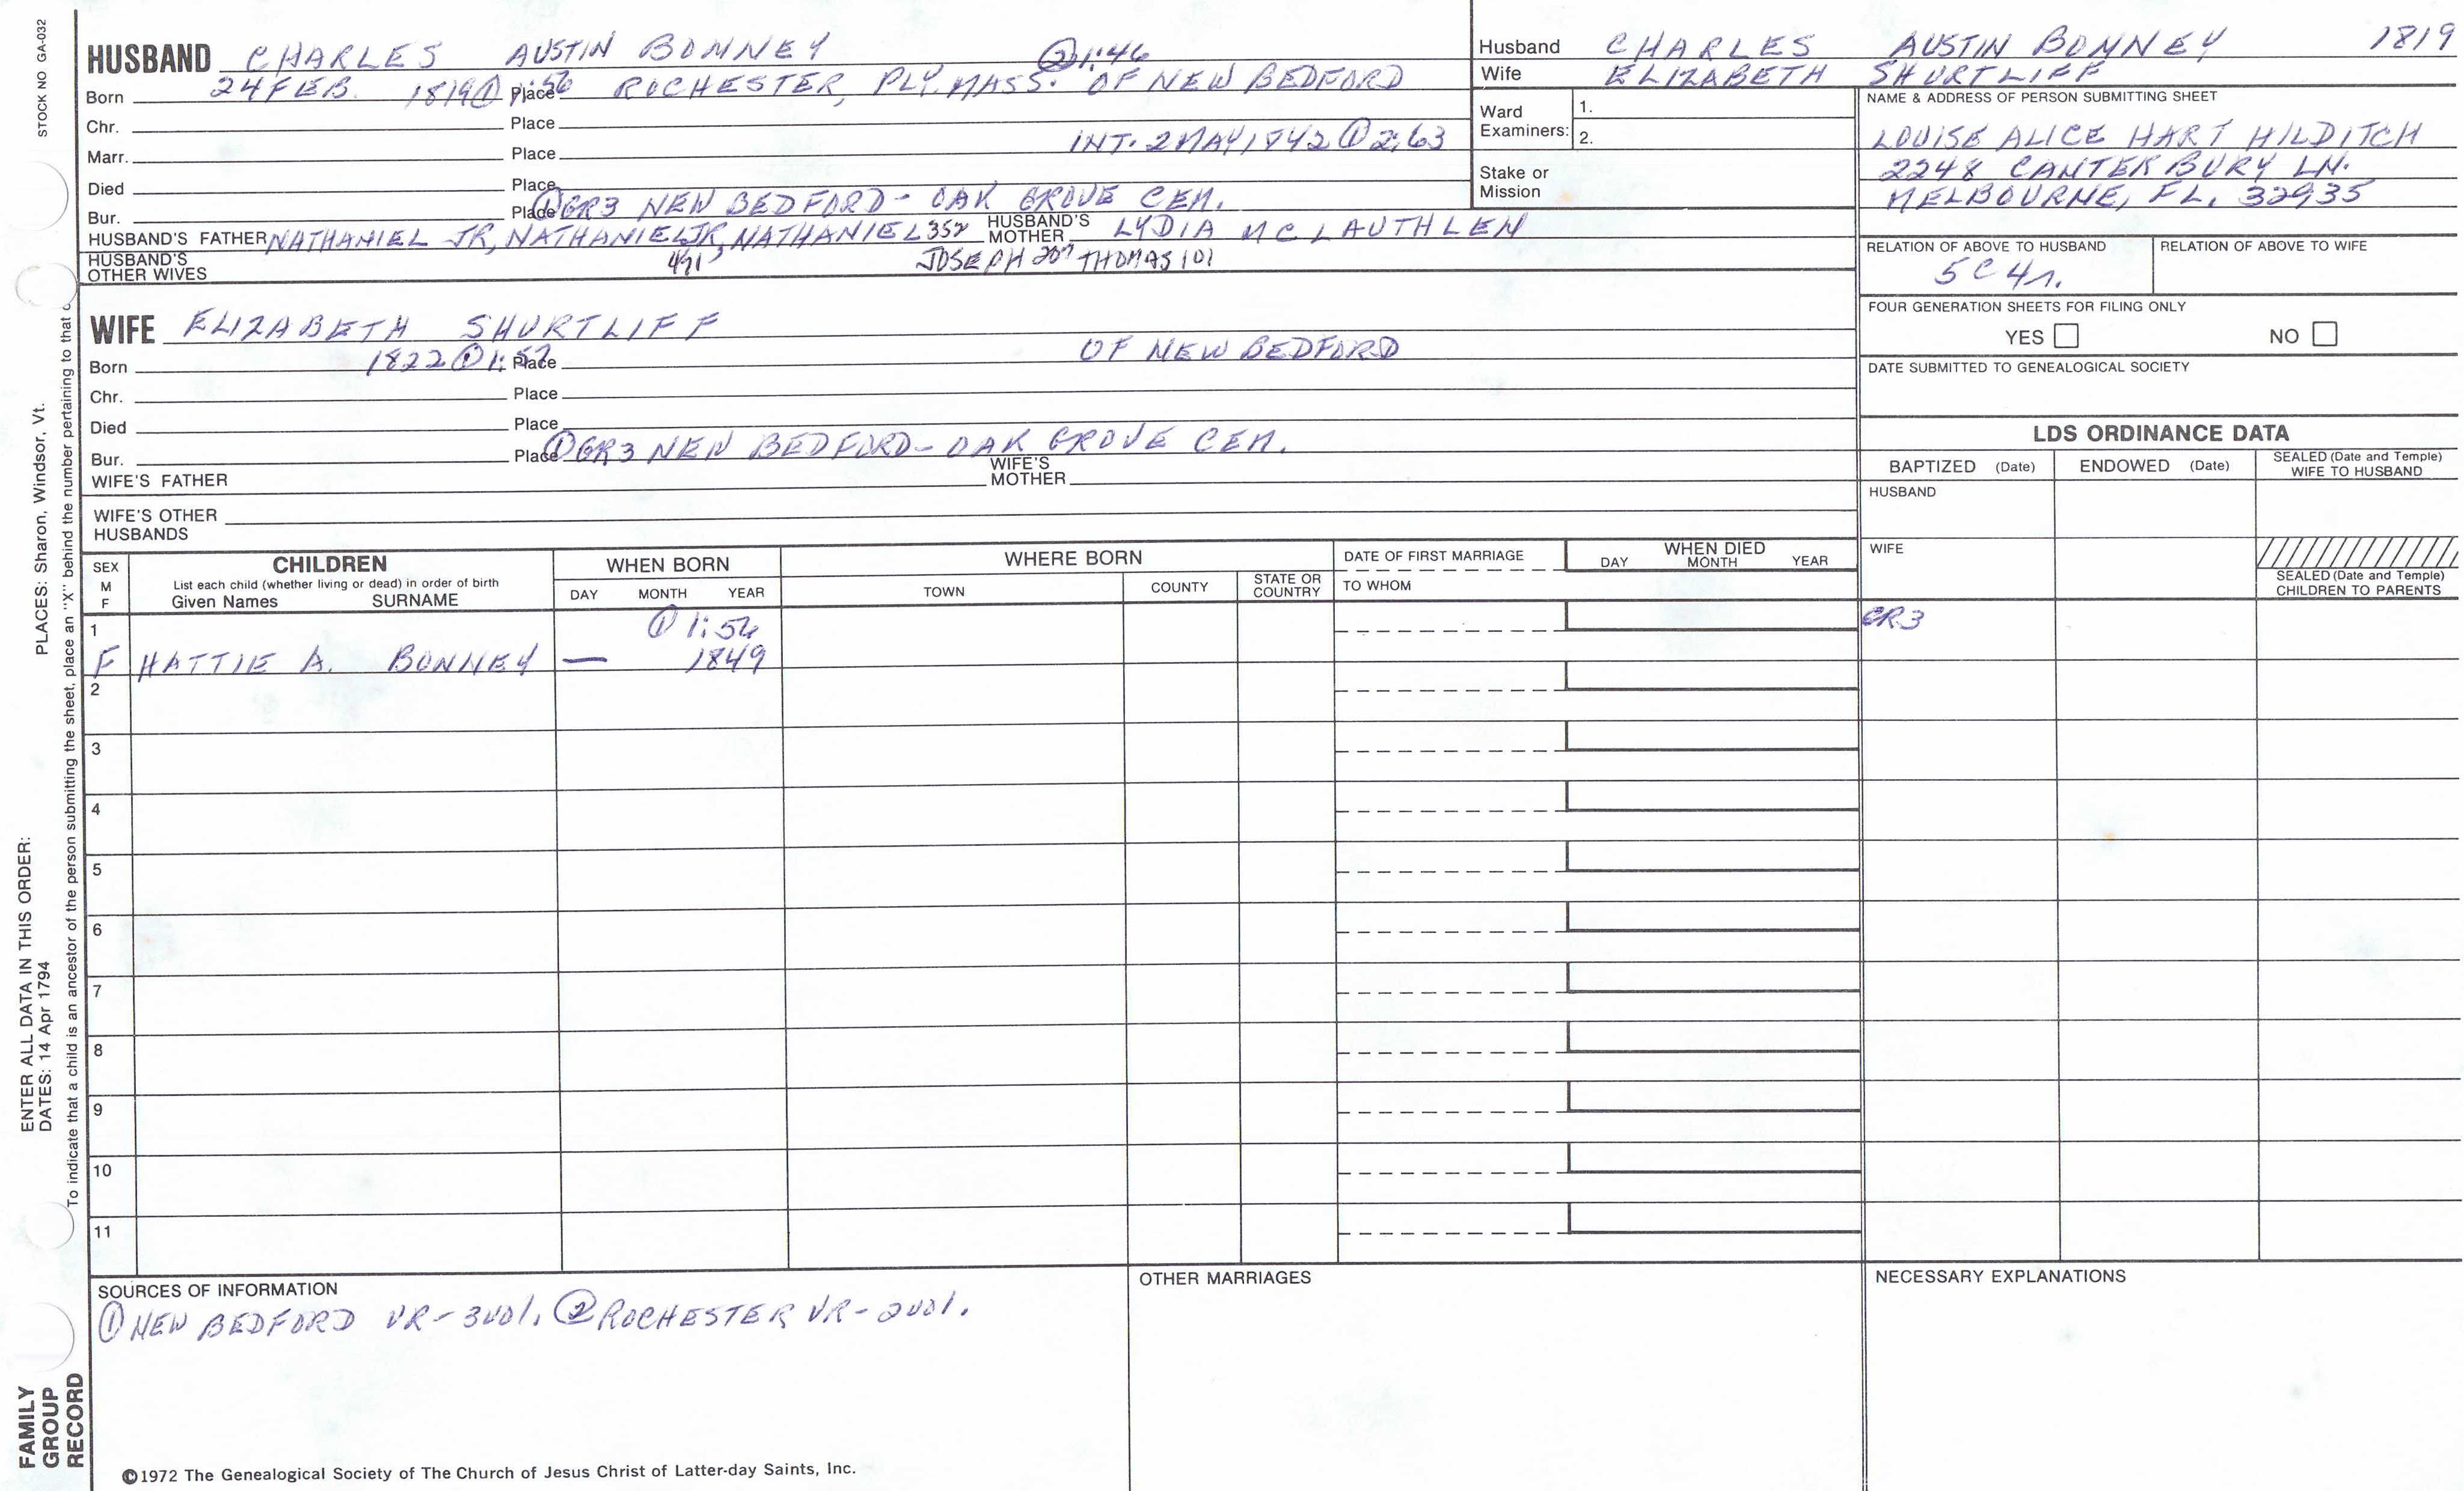 STOCK NO GA-032
PLACES: Sharon, Windsor, Vt.
ENTER ALL DATA IN THIS ORDER:
DATES: 14 Apr 1794
To indicate that a child is an ancestor of the person submitting the sheet, place an "X" behind the number pertaining to that c
FAMILY GROUP RECORD
HUSBAND CHARLES AUSTIN BONNEY ② 1:46
Born 24 FEB. 1819 ① 1:56 Place ROCHESTER, PLY. MASS. OF NEW BEDFORD
Chr. Place
Marr. Place INT. 2 MAY 1842 ① 2:63
Died Place
Bur. Place ① GR3 NEW BEDFORD - OAK GROVE CEM.
HUSBAND'S FATHER NATHANIEL JR, NATHANIEL JR, NATHANIEL 352 HUSBAND'S MOTHER LYDIA MCLAUTHLEN
HUSBAND'S OTHER WIVES 471 JOSEPH 207 THOMAS 101
WIFE ELIZABETH SHURTLIFF
Born 1822 ① 1:57 Place OF NEW BEDFORD
Chr. Place
Died Place
Bur. Place ① GR3 NEW BEDFORD - OAK GROVE CEM.
WIFE'S FATHER WIFE'S MOTHER
WIFE'S OTHER HUSBANDS
Husband CHARLES AUSTIN BONNEY 1819
Wife ELIZABETH SHURTLIFF
Ward Examiners: 1.
2.
Stake or Mission
NAME & ADDRESS OF PERSON SUBMITTING SHEET
LOUISE ALICE HART HILDITCH
2248 CANTERBURY LN.
MELBOURNE, FL. 32935
RELATION OF ABOVE TO HUSBAND RELATION OF ABOVE TO WIFE
5C4r.
FOUR GENERATION SHEETS FOR FILING ONLY
YES NO
DATE SUBMITTED TO GENEALOGICAL SOCIETY
LDS ORDINANCE DATA
BAPTIZED (Date) ENDOWED (Date) SEALED (Date and Temple) WIFE TO HUSBAND
HUSBAND
WIFE
SEALED (Date and Temple) CHILDREN TO PARENTS
SEX M F
CHILDREN
List each child (whether living or dead) in order of birth
Given Names SURNAME
WHEN BORN
DAY MONTH YEAR
WHERE BORN
TOWN COUNTY STATE OR COUNTRY
DATE OF FIRST MARRIAGE
TO WHOM
WHEN DIED
DAY MONTH YEAR
1 ① 1:56 GR3
F HATTIE A. BONNEY — 1849
2
3
4
5
6
7
8
9
10
11
SOURCES OF INFORMATION
① NEW BEDFORD VR-3vol. ② ROCHESTER VR-2vol.
OTHER MARRIAGES
NECESSARY EXPLANATIONS
©1972 The Genealogical Society of The Church of Jesus Christ of Latter-day Saints, Inc.